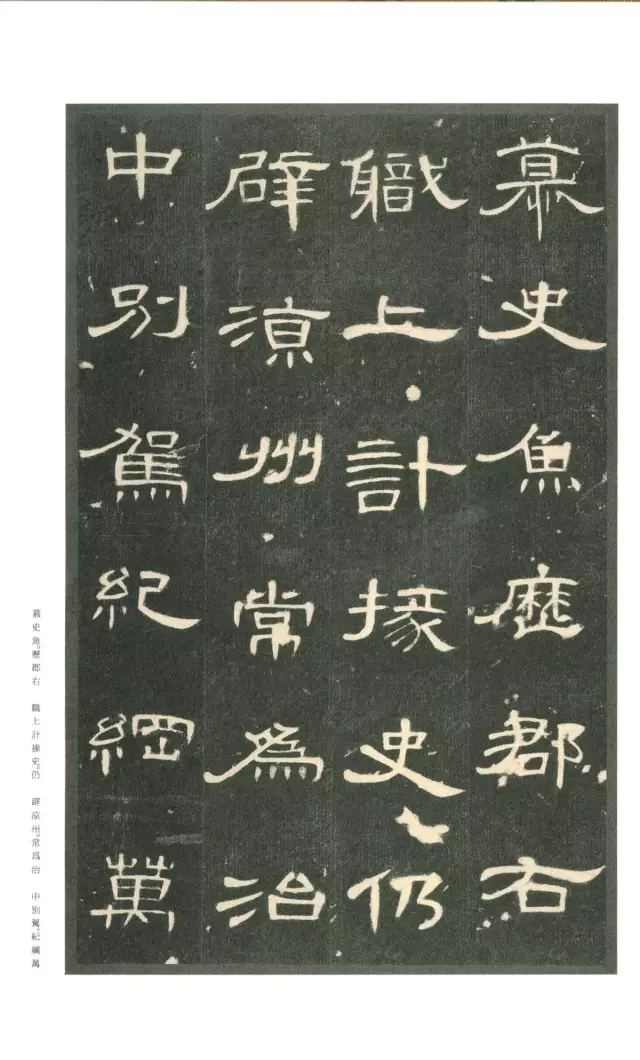 慕史魚歷郡右
職上計掾史仍
辟涼州常為治
中別駕紀綱萬
慕史魚。歷郡右 職上計掾史。仍 辟涼州。常爲治 中別駕。紀綱萬